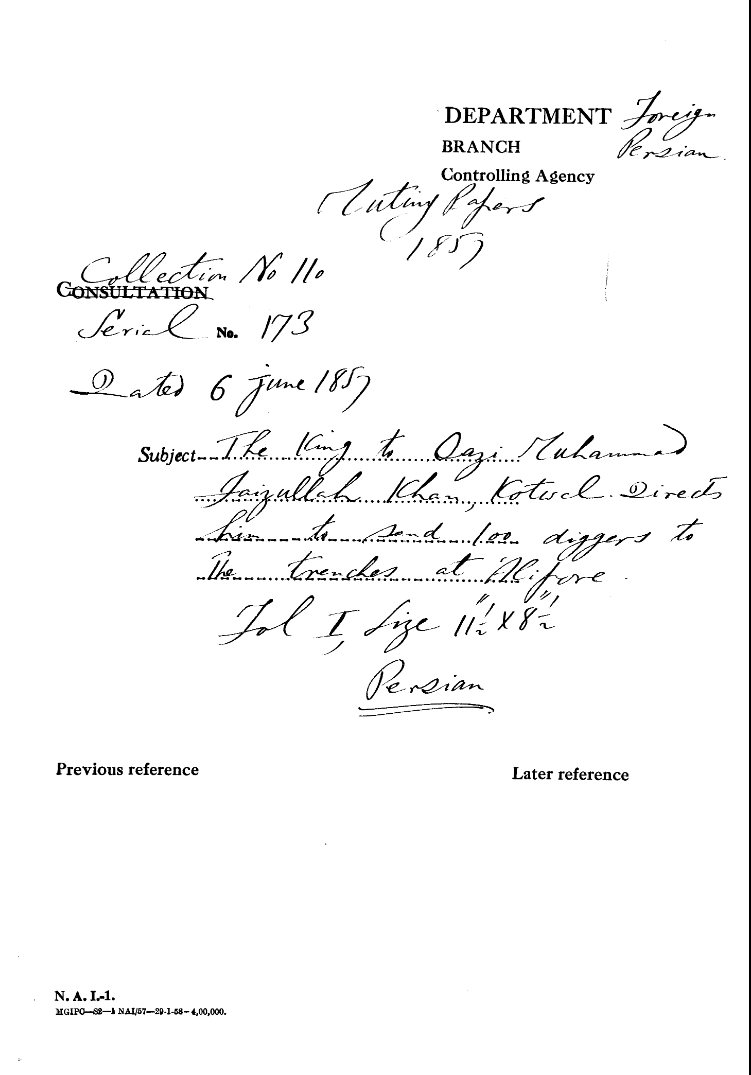 DEPARTMENT Foreign
BRANCH Persian
Controlling Agency
Mutiny Papers
1857
Collection No 110
CONSULTATION
Serial No. 173
Dated 6 June 1857
Subject The King to Qazi Muhammad
Faizullah Khan, Kotwal. Directs
him to send 100 diggers to
the trenches at
Fol I, Size 11½" X 8½"
Persian
Previous reference
Later reference
N. A. I.-1.
MGIPC—S2—1 NAI/57—29-1-58—4,00,000.